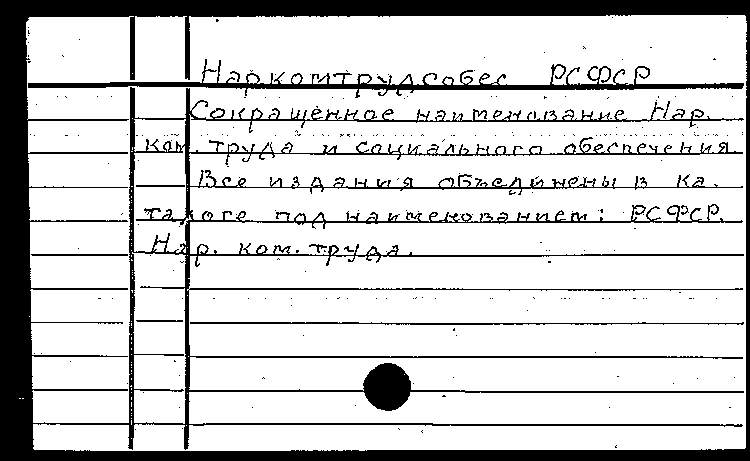 Наркомтрудсобес РСФСР
Сокращенное наименование Нар.
ком. труда и социального обеспечения.
Все издания объединены в ка.
талоге под наименованием: РСФСР.
Нар. ком. труда.